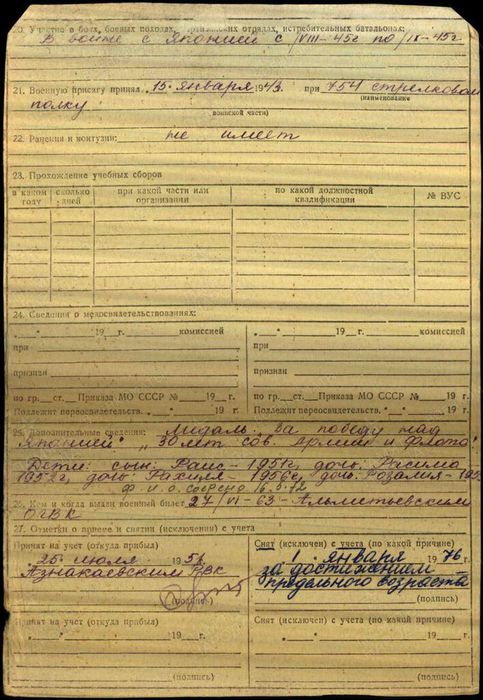 20. Участие в боях, боевых походах, партизанских отрядах, истребительных батальонах:
В войне с Японией с /VIII-45г по /IX-45г
21. Военную присягу принял 15 января 1943 при 754 стрелковом
(наименование
полку
воинской части)
22. Ранения и контузии: не имеет
23. Прохождение учебных сборов
в каком году сколько дней при какой части или организации по какой должностной квалификации № ВУС
24. Сведения о медосвидетельствованиях:
„ " 19 г. комиссией „ " 19 г. комиссией
при при
признан признан
по гр. ст. Приказа МО СССР № 19 г. по гр. ст. Приказа МО СССР № 19 г.
Подлежит переосвидетельств. „ " 19 г. Подлежит переосвидетельств. „ " 19 г.
25. Дополнительные сведения: Мидаль: „За победу над
Японией" „30 лет сов. Армии и флота"
Дети: сын. Раис - 1951г, дочь. Расима
1952г, дочь Рахиля - 1956г, дочь. Розалия - 195
26. Кем и когда выдан военный билет 27/VI-63 - Альметьевским
ОГВК
27. Отметки о приеме и снятии (исключении) с учета
Принят на учет (откуда прибыл) Снят (исключен) с учета (по какой причине)
25 июля 1956 1. января 1976
Азнакаевским РВК за достижением
предельного возраста
(подпись) (подпись)
Принят на учет (откуда прибыл) Снят (исключен) с учета (по какой причине)
„ " 19 г. „ " 19 г.
(подпись) (подпись)